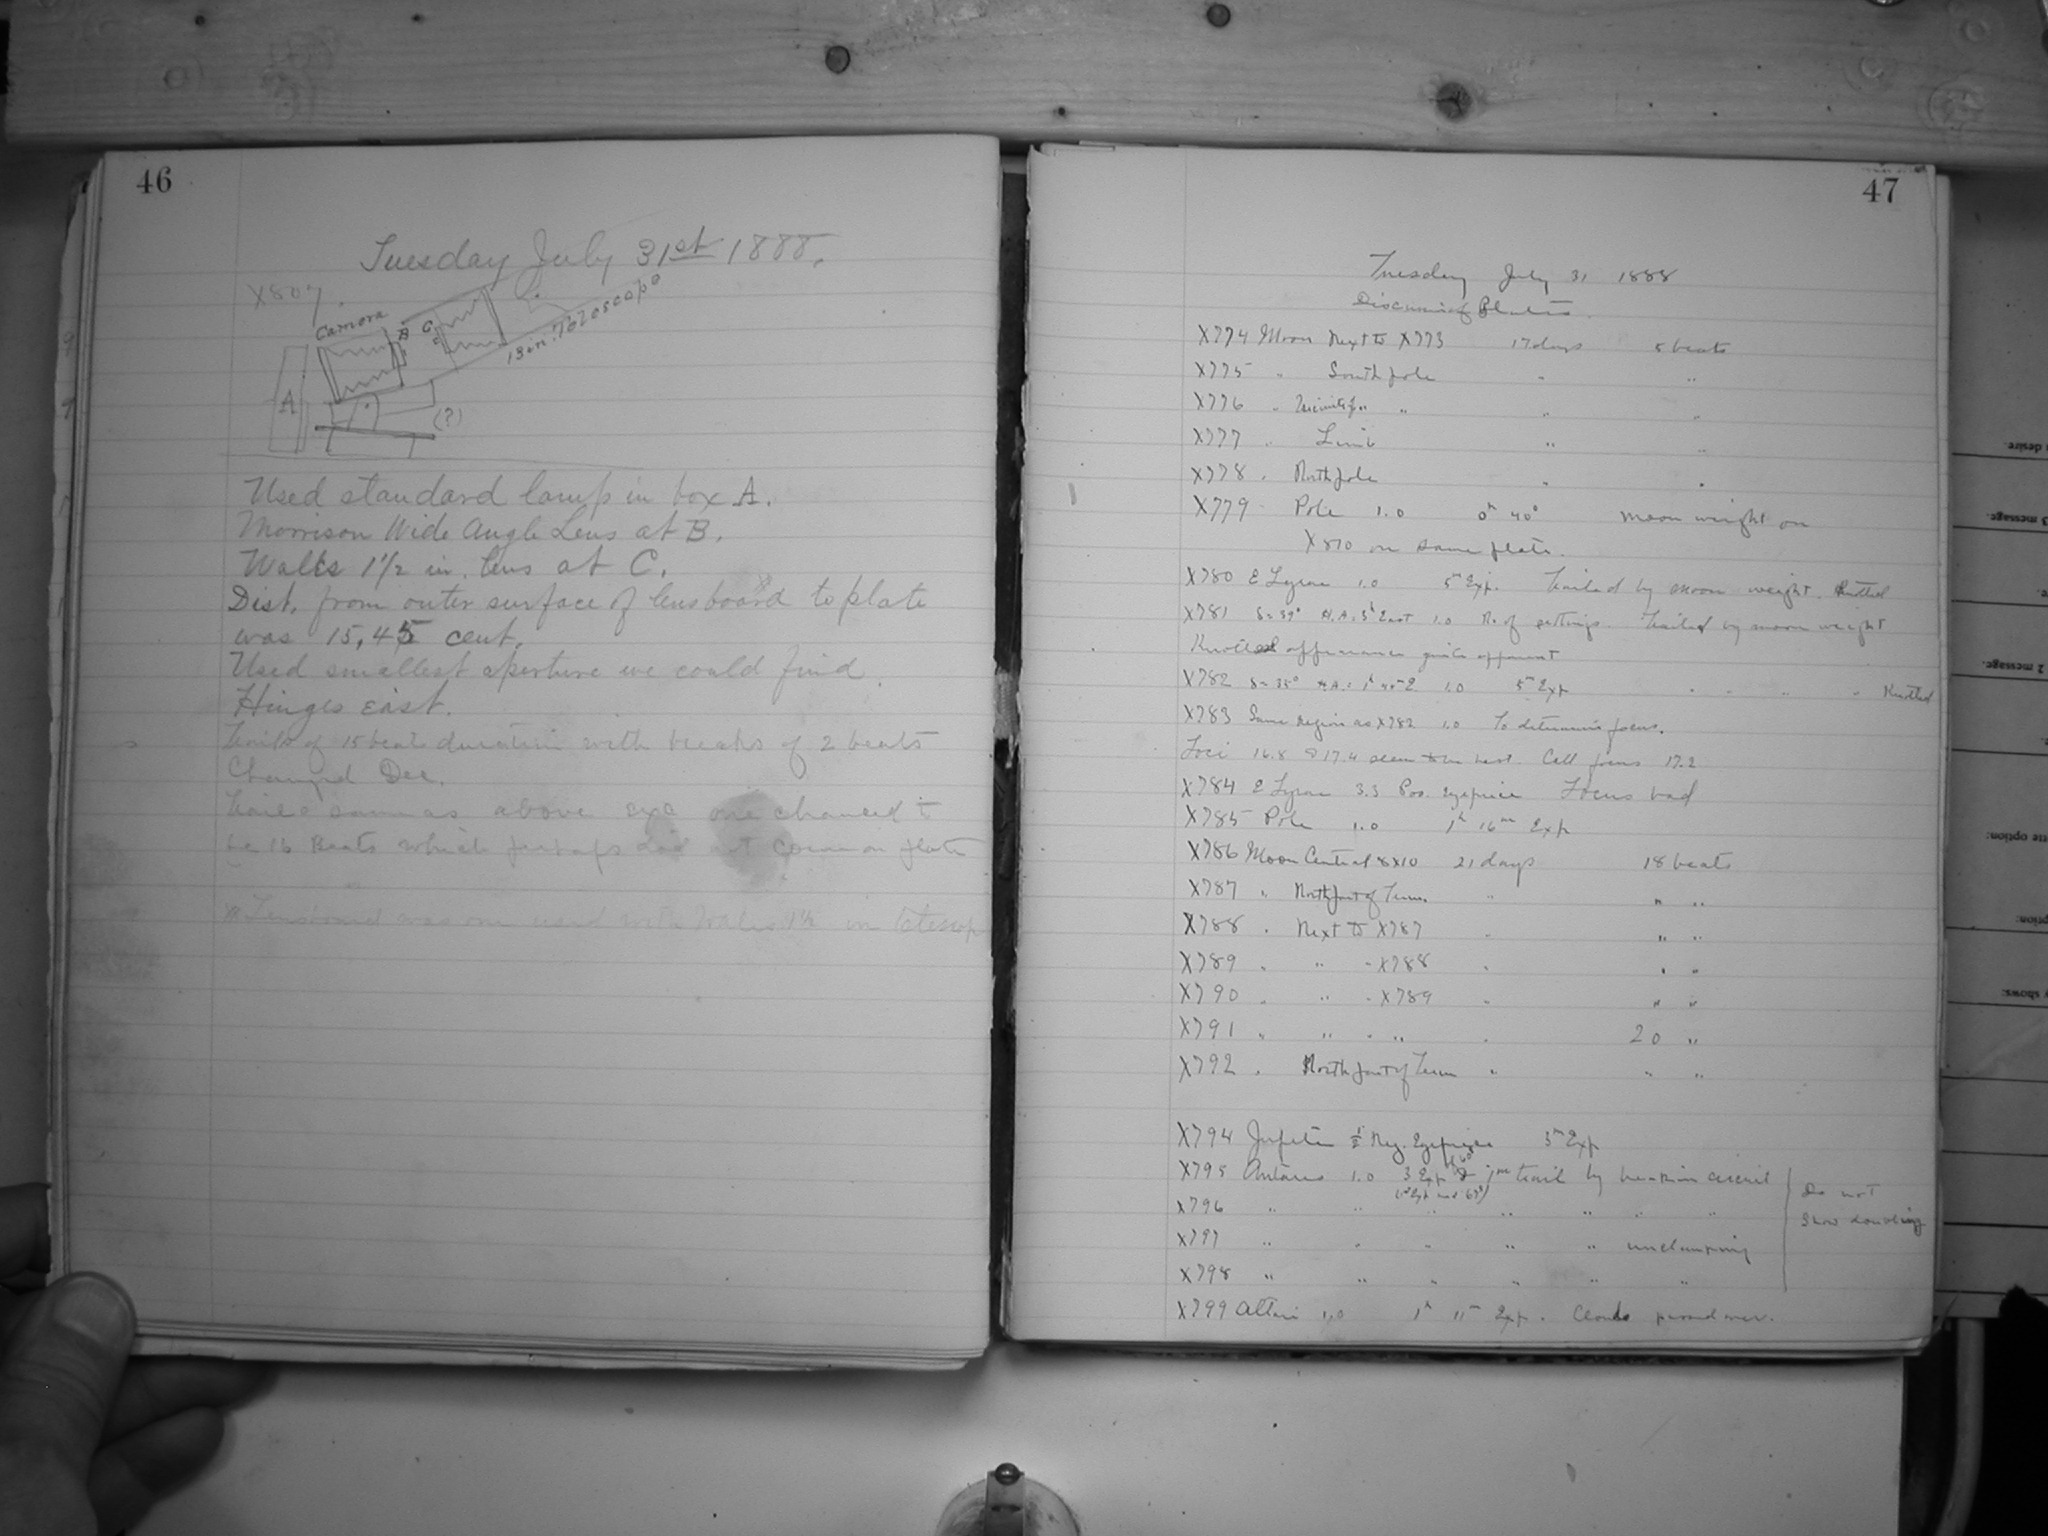 46
Tuesday July 31st 1888.
X807.
Camera
B
C
13 in. Telescope
A
(?)
Used standard lamp in box A.
Morrison Wide Angle Lens at B.
Walks 1 1/2 in. lens at C.
Dist. from outer surface of lensboard to plate
was 15,45 cent.
Used smallest aperture we could find.
Hinges east.
Trails of 15 beats duration with breaks of 2 beats
Changed Dec.
Trails same as above exc one chanced to
be 16 Beats which perhaps did not come on plate
Lensboard was one used with Wales 1 1/2 in telescop
47
Tuesday July 31 1888
Discussion of Plates.
X774 Moon Next to X773 17 days 5 beats
X775 " South pole " "
X776 " Vicinity of " " " "
X777 " Limb " "
X778 " North pole " "
X779 - Pole 1.0 0h 40° moon weight on
X810 on same plate.
X780 E Lyrae 1.0 5m Exp. Trailed by moon weight. Knotted
X781 δ=39° H.A.=5h East 1.0 No. of settings. Trailed by moon weight
Knotted appearance quite apparent
X782 δ=35° H.A.= 1h 45m E 1.0 5m Exp " " " " Knotted
X783 Same region as X782 1.0 To determine focus.
Foci 16.8 & 17.4 seem to be best. Call focus 17.2
X784 E Lyrae 3.3 Pos. Eyepiece Focus bad
X785 Pole 1.0 1h 16m Exp
X786 Moon Central 8x10 21 days 18 beats
X787 " North part of Term. " " "
X788 " Next to X787 " " "
X789 " " " X788 " " "
X790 " " " X789 " " "
X791 " " " " " 20 "
X792 " North part of Term " " "
X794 Jupiter 1/2 Neg. Eyepiece 3m Exp
X795 Antares 1.0 3 Exp of trail by breaking circuit
X796 " " " " " " "
X797 " " " " " unclamping
X798 " " " " " "
Do not
show doubling
X799 Altair 1.0 1h 11m Exp. Clouds passed over.